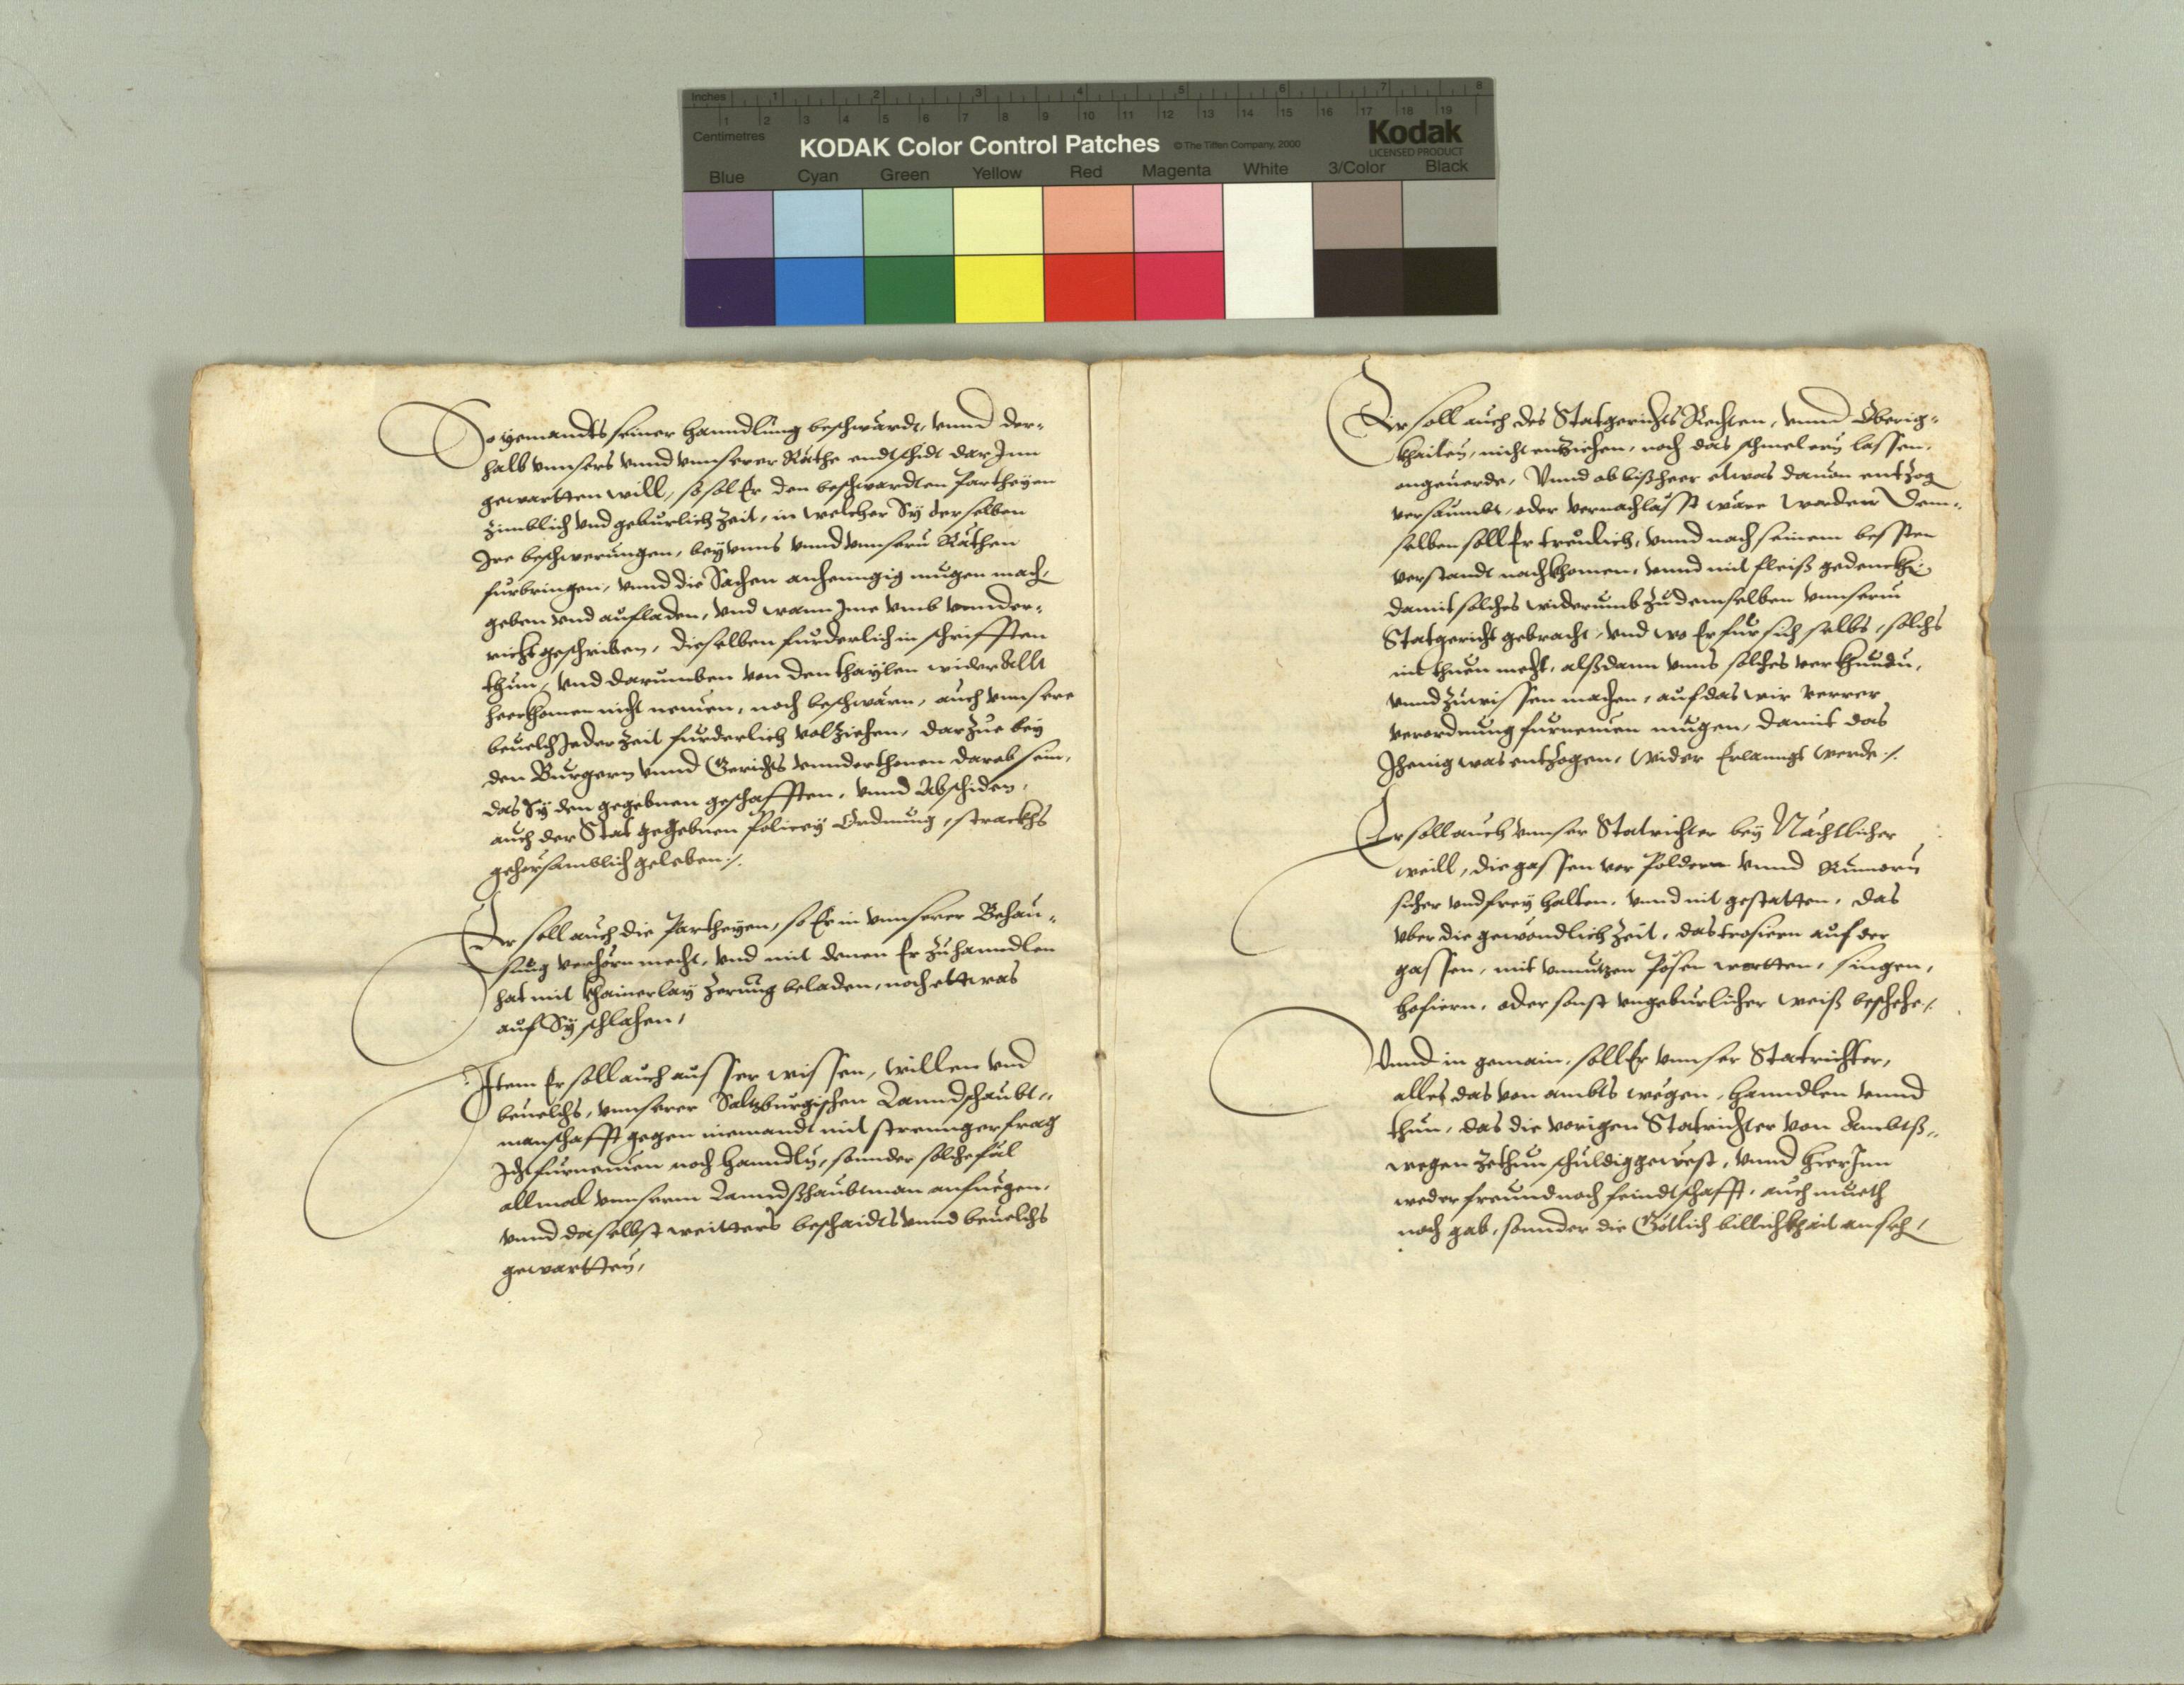 Inches 1 2 3 4 5 6 7 8
Centimetres 1 2 3 4 5 6 7 8 9 10 11 12 13 14 15 16 17 18 19
KODAK Color Control Patches © The Tiffen Company, 2000 Kodak
LICENSED PRODUCT
Blue Cyan Green Yellow Red Magenta White 3/Color Black
So yemandts seiner hanndlung beschwärdt, vnnd der-
halb vnnsers vnnd vnnserer Räthe endtschidt darJnn
gewartten will, so sol Er den beschwardten Partheyen
zimblich vnd gebürlich Zeit, in welcher Sÿ derselben
Jre beschwerungen, beÿ vnns vnnd vnnsern Räthen
fürbringen, vnnd die Sachen anhenngig mügen mach,
geben vnd aufladen, vnd wann Jme vmb vnnder-
richt geschriben, dieselben fürderlich in schrifften
thun, vnd darumben von den thaylen wider Allt
heerkhomen nicht nemen, noch beschwärn, auch vnnsere
beuelch Jederzeit fürderlich volziehen, darzue beÿ
den Burgern vnnd Gerichts vnnderthonen darob sein,
das Sÿ den gegebnen geschefften, vnnd Abschiden,
auch der Stat gegebnen Policeÿ Ordnung, strackhs
gehorsamblich geleben ./.
Er soll auch die Partheyen, so Er in vnnserer Behau-
sung verhörn mecht, vnd mit denen Er zuhanndlen
hat mit khainerlaÿ Zerung beladen, noch ettwas
auf Sÿ schlahen,
Item Er soll auch ausser wissen, willen vnd
beuelchs, vnnserer Saltzburgischen Lanndshaubt-
manschafft gegen niemandt mit strennger frag
Jcht fürnemen noch hanndln, sonnder solche fäl
allmal vnnserm Lanndßhaubtman anfuegen,
vnnd daselbst weitters beschaidts vnnd beuelchs
gewartten,
Er soll auch des Statgerichts Rechten, vnnd Oberig-
khaiten, nicht entziehen, noch das schmelern lassen,
ongeuerde, Vnnd ob bißheer etwas dauon entzog
versaumbt, oder vernachlässt wäre worden Dem-
selben soll Er treulich, vnnd nach seinem bessten
verstandt nachkhomen, vnnd mit fleiß gedenckh
damit solches widerumb zu demselben vnnserm
Statgericht gebracht, vnd wo Er für sich selbs, solchs
nit thuen mecht, alßdann vnns solches verkhündn,
vnnd zuwissen machen, auf das wir verrer
verordnung fürnemen mügen, damit das
Jhenig was entzogen, wider Erlanngt werde ./.
Er soll auch vnnser Statrichter beÿ Nächtlicher
weill, die gassen vor Poldern vnnd Rumorn
sicher vnd freÿ halten, vnnd nit gestatten, das
vber die gewondlich Zeit, das hofiern auf der
gassen, mit vnnützen Posen wortten, singen,
hofiern, oder sonst vngebürlicher weiß beschehe ./.
Vnnd in gemain, soll Er vnnser Statrichter,
alles das von ambts wegen, hanndlen vnnd
thun, das die vorigen Statrichter von Ambtß-
wegen zethun schuldig gewest, vnnd hierJnn
weder freund noch feindtschafft, auch mueth
noch gab, sonnder die Götlich billichkhait anseh,